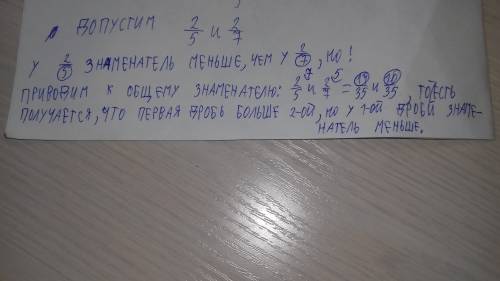 Допустим 2/5 и 2/7
У 2/5 знаменатель меньше, чем у 2/7, но!
Приводим к общему знаменателю: 2/5 ⁷ и 2/7 ⁵ = 14/35 и 10/35, тоесть
получается, что первая дробь больше 2-ой, но у 1-ой дроби знаме-
натель меньше.